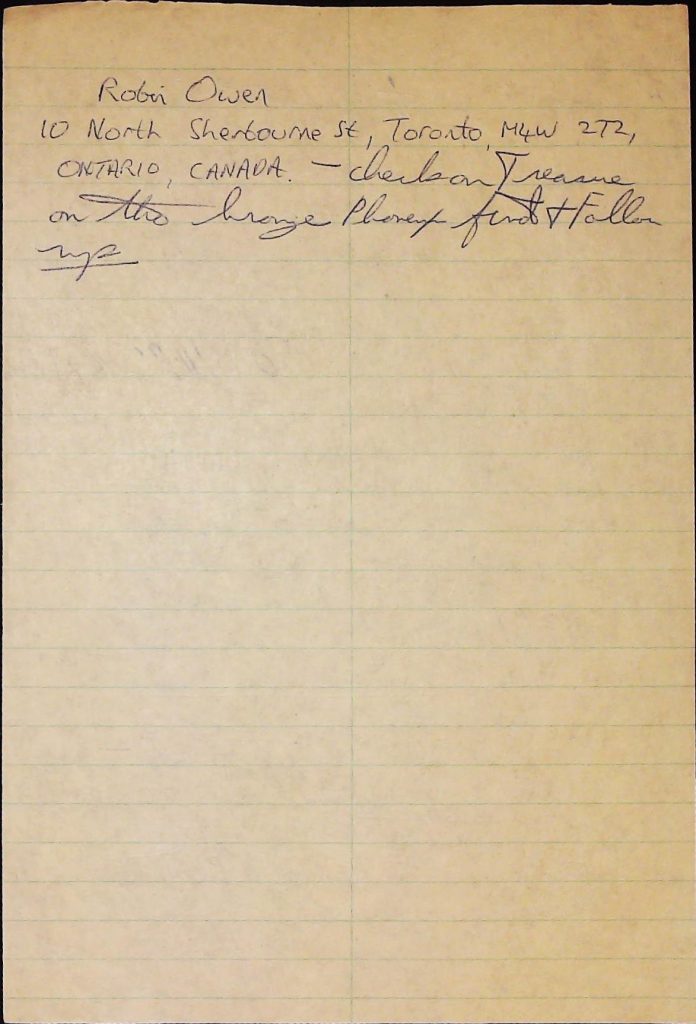 Robin Owen
10 North Sherbourne St, Toronto, M4W 2T2,
ONTARIO, CANADA. - check on Treasure
on the bronze Phoney find & Follow
up